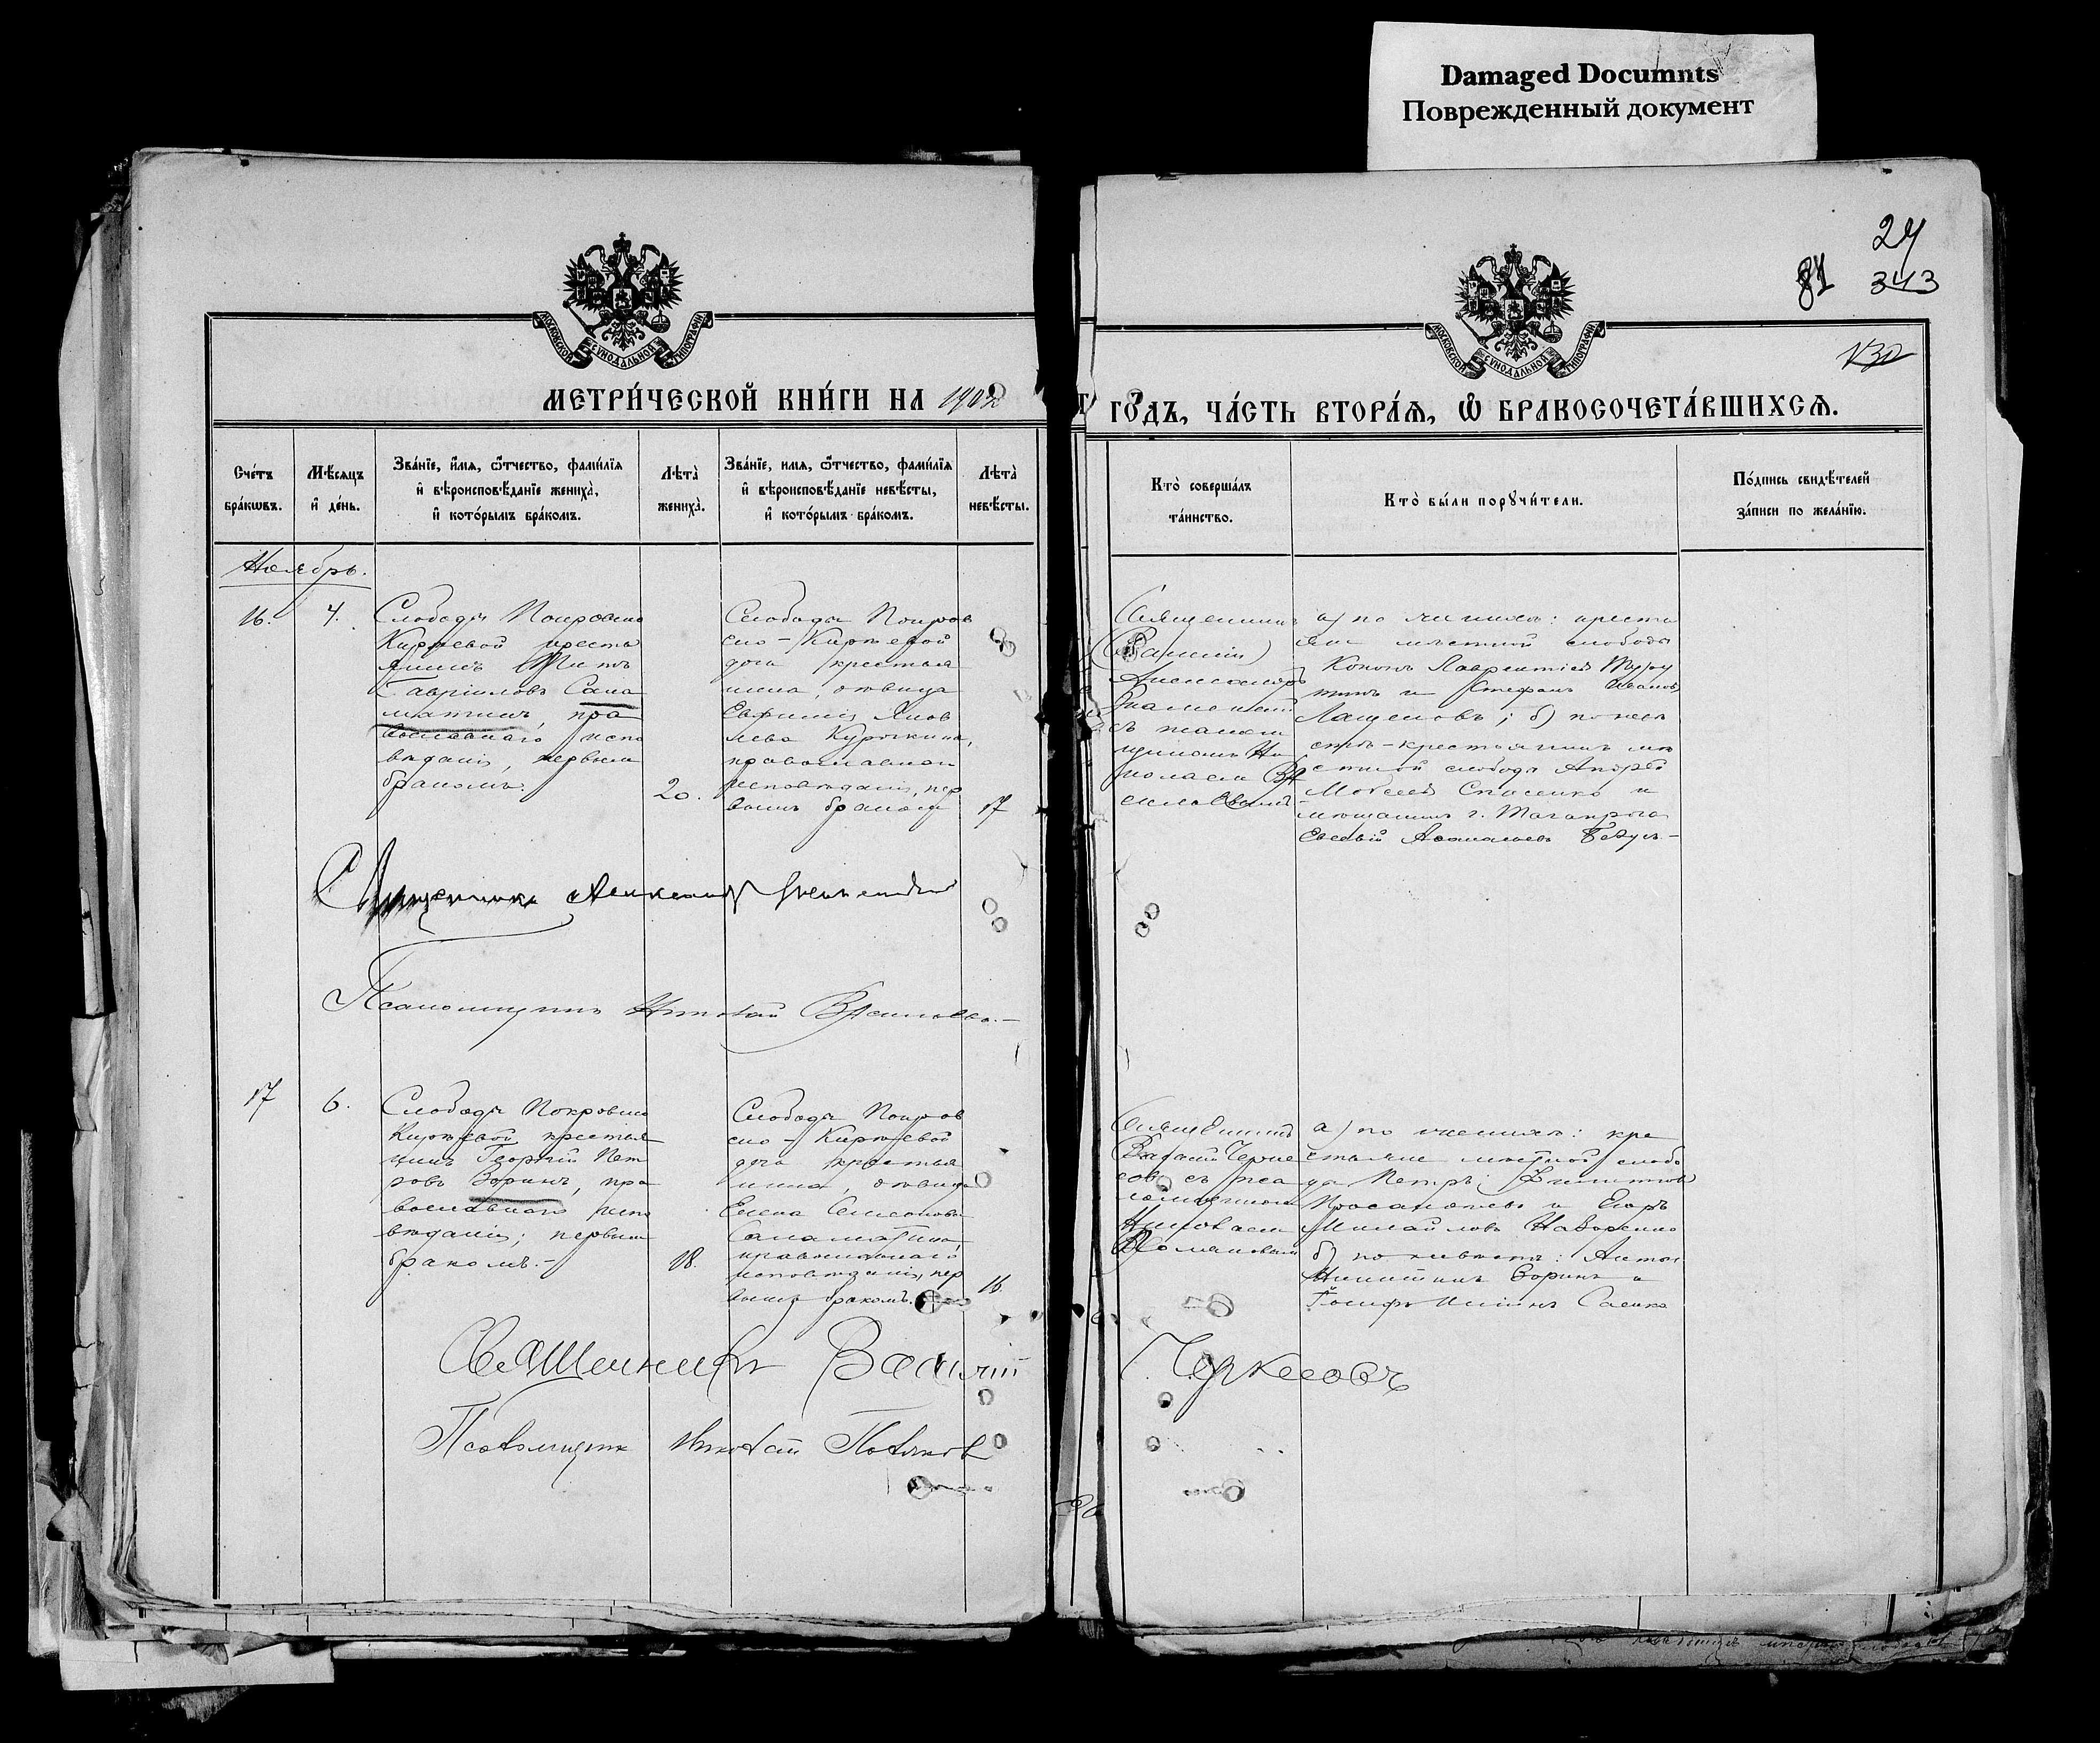 Damaged Documnts
Поврежденный документ
24
81 343
132
МОСКОВСКОЙ СѴНОДАЛЬНОЙ ТИПОГРАФІИ
МОСКОВСКОЙ СѴНОДАЛЬНОЙ ТИПОГРАФІИ
МЕТРИ́ЧЕСКОЙ КНИ́ГИ НА 1902
ГО́ДЪ, ЧА́СТЬ ВТОРА́Ѧ, Ѡ҆ БРАКОСОЧЕТА́ВШИХСѦ.
Сче́тъ
бра́кѡвъ.
Мѣ́сяцъ
и҆ де́нь.
Зва́нїе, и҆́мѧ, ѻ҆́тчество, фами́лїѧ
и҆ вѣроисповѣ́данїе жениха̀,
и҆ кото́рымъ бра́комъ.
Лѣта̀
жениха̀.
Зва́нїе, имѧ, ѻ҆́тчество, фами́лїѧ
и҆ вѣроисповѣ́данїе невѣ́сты,
и҆ кото́рымъ бра́комъ.
Лѣта̀
невѣ́сты.
Кто̀ соверша́лъ
та́инство.
Кто̀ бы́ли порꙋчи́тели.
По́дпись свидѣ́телей
за́писи по жела́нїю.
Ноябрь.
16.
4.
Слободы Покровско
Киреевой кресть
янинъ Титъ
Гавріиловъ Сала
матинъ, пра
вославнаго испо
вѣданія, первымъ
бракомъ.
20.
Слободы Покров
ско-Киреевой
дочь крестья
нина, девица
Евфимія Яков
лева Курочкина,
православнаго
исповѣданія, пер
вымъ бракомъ
17
Священникъ
Александръ
Знаменскій
съ псалом
щикомъ Ни
колаемъ
а) по женихѣ: кресть
яне мѣстной слободы
Кононъ Лаврентіевъ
и Стефанъ Ивановъ
Лащеновъ; б) по невѣ
стѣ-крестьянинъ мѣ
стной слободы Андрей
Моѵсеевъ Спасенко и
мѣщанинъ г. Таганрога
Евсевій
Священникъ Александръ Знаменскій
Псаломщикъ Николай
17
6.
Слободы Покровско
Киреевой крестья
нинъ Георгій Пет
ровъ Зоринъ, пра
вославнаго испо
вѣданія; первымъ
бракомъ.-
18.
Слободы Покров
ско-Киреевой
дочь крестья
нина, девица
Елена Симеонова
Саламатина,
православнаго
исповѣданія, пер
вымъ бракомъ.
16
Священникъ
Василій Черке
совъ съ пса
ломщикомъ
Николаемъ
а) по женихѣ: кре
стьяне мѣстной слобо
ды Петръ Филипповъ
и Егоръ
Михайловъ Назаренко
б) по невѣстѣ: Антонъ
Никитинъ Зоринъ и
Іосифъ Саенко
Священникъ Василій
Черкесовъ
Псаломщикъ Николай Поляковъ